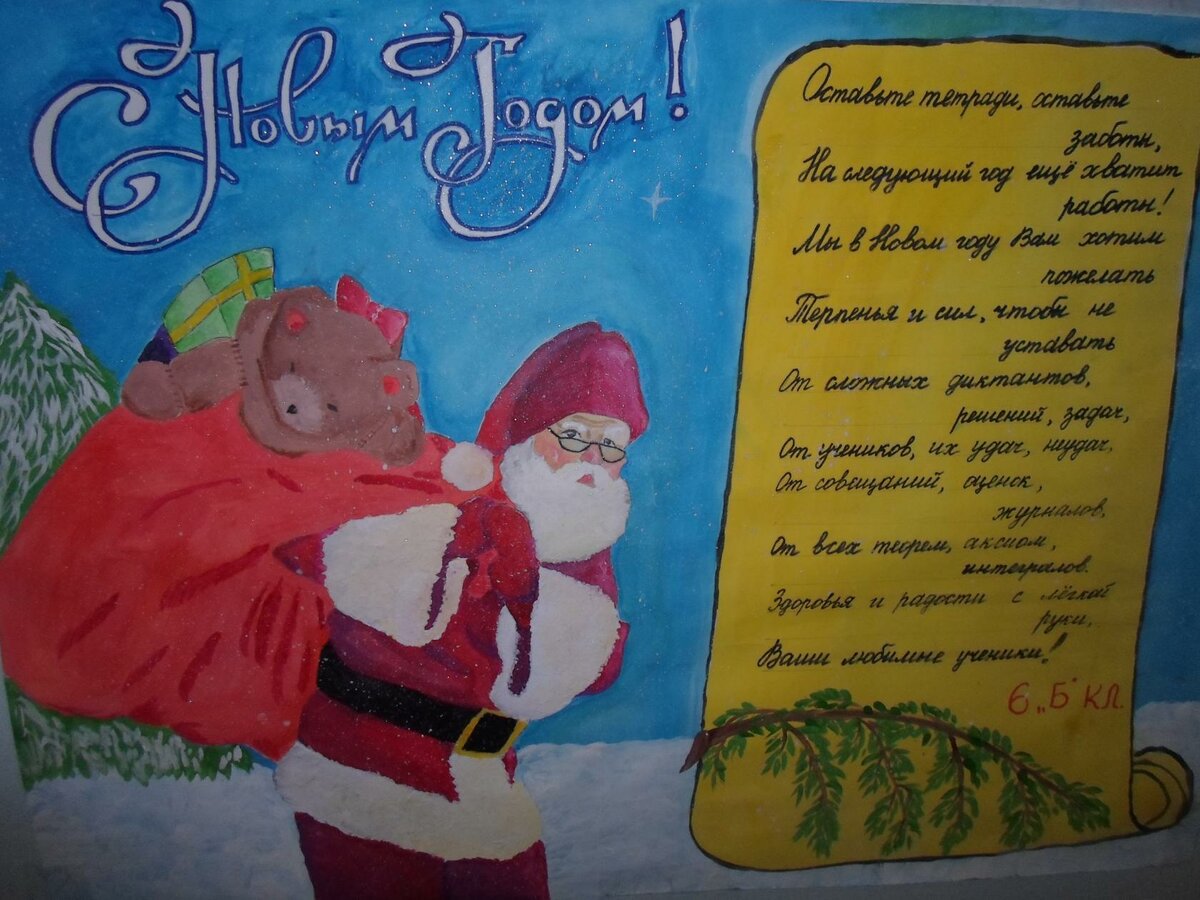 С Новым Годом!
Оставьте тетради, оставьте
заботы,
На следующий год ещё хватит
работы!
Мы в Новом году Вам хотим
пожелать
Терпенья и сил, чтобы не
уставать
От сложных диктантов,
решений, задач,
От учеников, их удач, неудач,
От совещаний, оценок,
журналов,
От всех теорем, аксиом,
интегралов.
Здоровья и радости с лёгкой
руки,
Ваши любимые ученики!
6 „Б" кл.